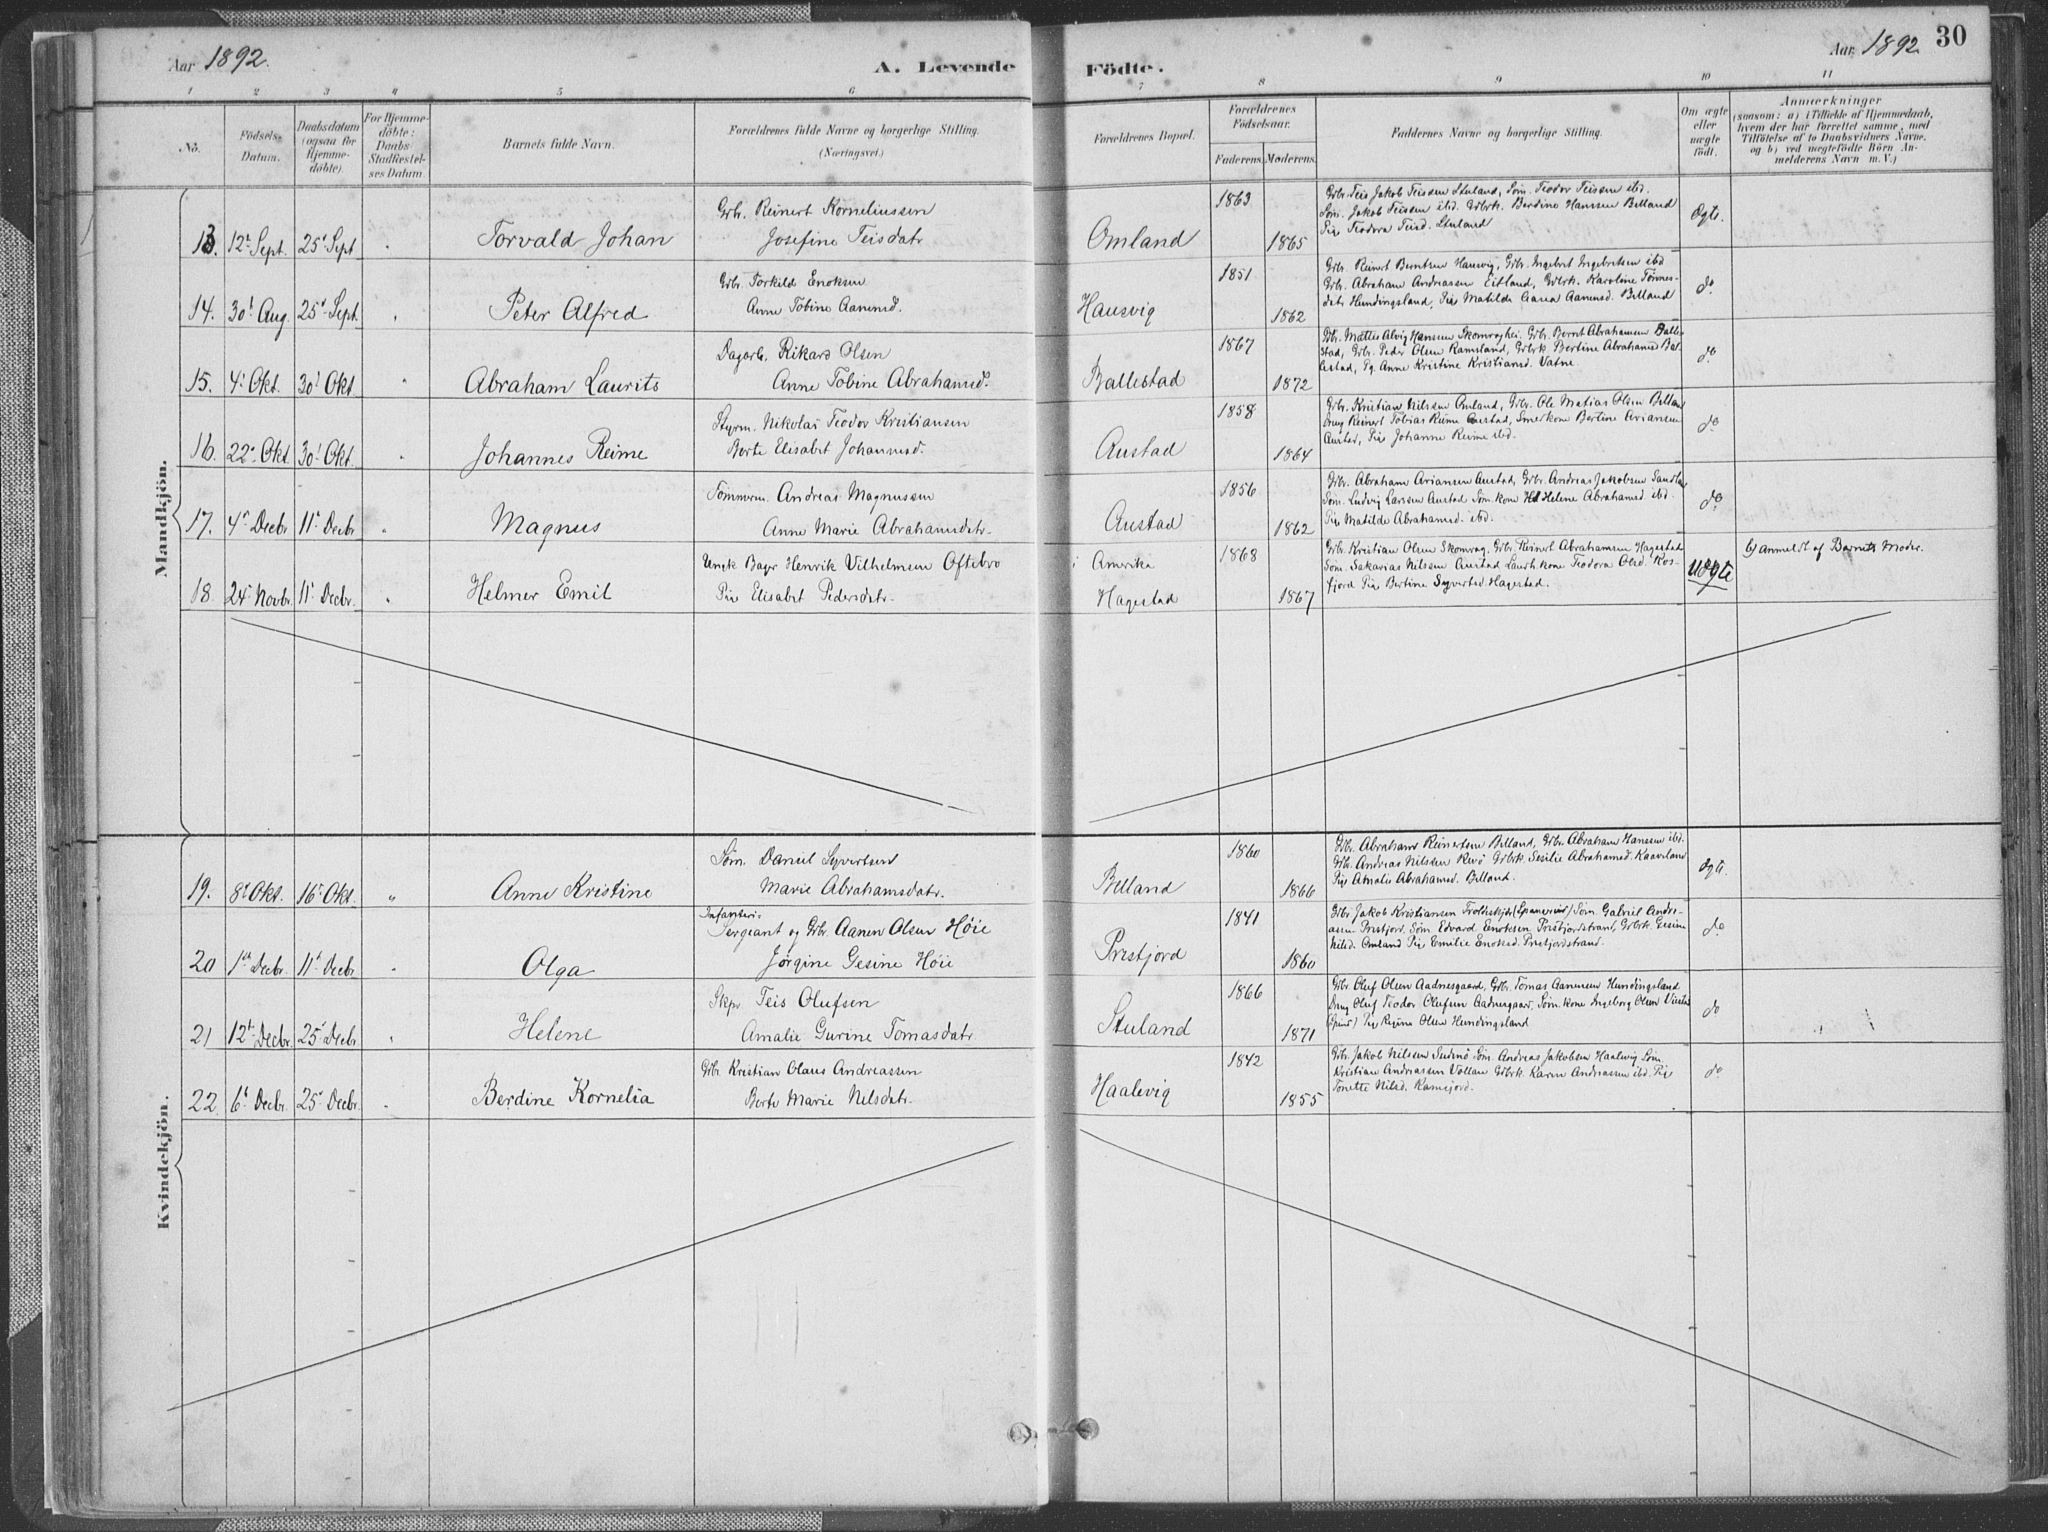 Aar 1892.
A. Levende Födte.
Aar 1892
30
1 2 3 4 5 6 7 8 9 10 11
No.
Födsels-Datum.
Daabsdatum (ogsaa for Hjemmedöbte)
For Hjemmedöbte: Daabs-Stadfæstelses Datum.
Barnets fulde Navn.
Forældrenes fulde Navne og borgerlige Stilling. (Næringsvei.)
Forældrenes Bopæl.
Forældrenes Födselsaar.
Faderens.
Moderens.
Faddernes Navne og borgerlige Stilling.
Om ægte eller uægte födt.
Anmærkninger
(saasom: a) i Tilfælde af Hjemmedaab,
hvem der har forrettet samme, med
Tilföielse af to Daabsvidners Navne.
og b) ved uægtefödte Börn Anmelderens Navn m. V.)
Mandkjön.
13. 12t Sept. 25' Sept " Torvald Johan
Grbr. Reinert Korneliussen
Josefine Teisdatr
Omland
1863
1865
Grbr. Teis Jakob Teissen Stuland, Søm. Teodor Teissen ibd.
Søm. Jakob Teissen ibd. Grbrk. Berdine Hanssen Belland
Pig Teodora Teisd. Stuland
Ægte.
14. 30t Aug. 25' Sept. " Peter Alfred
Grbr. Torkild Enoksen
Anne Tobine Aanensd.
Hausvig
1851
1862
Grbr. Reinert Berntsen Hausvig, Grbr. Ingebret Ingebretsen ibd
Grbr. Abraham Andreassen Eitland, Grbrk. Karoline Tønnes-
datr Hundingsland, Pig Matilde Aanensd. Belland
do
15. 4' Okt. 30t Okt " Abraham Laurits
Dagarb. Rikard Olsen
Anne Tobine Abrahamsd.
Ballestad
1867
1872
Grbr. Peder Olsen Ramsland, Grbrk Bertine Abrahams Bal-
lestad, Pg. Anne Kristine Kristiansd. Vatne.
do
16. 22' Okt. 30t Okt. " Johannes Reime
Styrm. Nikolai Teodor Kristiansen
Berte Elisabet Johannesd.
Austad
1858
1864
Grbr. Kristian Nilssen Omland, Grbr. Ole Matias Olsen Belland
Ung Reinert Tobias Reime Austad, Smedkone Bertine Ariansen
Austad, Pig Johanne Reime ibd.
do
17. 4' Decbr 11' Decbr " Magnus
Tømmerm. Andreas Magnussen
Anne Marie Abrahamsdatr.
Austad
1856
1862
Grbr. Abraham Ariansen Austad, Grbr. Andreas Jakobsen
Søm. Ludvig Larssen Austad Søm. kone Helene Abrahamsd ibd.
Pig Matilde Abrahamsd. ibd.
do
18. 24' Novbr. 11' Decbr. " Helmer Emil
Ungk Henrik Vilhelmsen Oftebro
Pig Elisabet Pedersdatr.
i Amerika
Hagestad
1868
1867
Grbr. Kristian Olsen Skomrag, Grbr. Reinert Abrahamsen Hagestad
Søm. Sakarias Nilssen Austad Teodora Olsd. Ros-
fjord Pig Bertine Syvertsd. Hagestad.
Uægte
b) anmeldt af Barnets Moder.
Kvindekjön.
19. 8' Okt. 16' Okt. " Anne Kristine
Søm. Daniel Syvertsen
Marie Abrahamsdatr.
Belland
1860
1866
Grbr. Abraham Reinertsen Belland, Grbr. Abraham Hanssen ibd.
Grbr. Andreas Nilssen Revø Grbrk. Sesilie Abrahamsd. Kaaveland
Pig Amalie Abrahamsd. Belland.
Ægte.
20 1ste Decbr. 11' Decbr. " Olga
Infanteri-
Sergeant og Grbr. Aanen Olsen Høie
Jørgine Gesine Høie
Prestjord
1841
1860
Grbr. Jakob Kristiansen Søm. Gabriel Andre-
assen Prestjord. Søm. Edvard Enoksen Prestjordstrand, Grbrk. Gesine
Nilsd. Omland Pig Emilie Enoksd. Prestjordstrand.
do
21 12t Decbr. 25' Decbr. " Helene
Skpr. Teis Olufsen
Amalie Gurine Tomasdatr
Stuland
1866
1871
Grbr. Oluf Olsen Aadnesgaard, Grbr. Tomas Aanensen Hundingsland
Ung Oluf Teodor Olufsen Aadnesgaard, Søm. kone Ingeborg Olsen
Pig Regine Olsen Hundingsland
do
22. 6' Decbr. 25' Decbr. " Berdine Kornelia
Grbr. Kristian Olaus Andreassen
Berte Marie Nilsdatr.
Haalevig
1842
1855
Grbr. Jakob Nilssen Søm. Andreas Jakobsen Haalevig Søm.
Kristian Andreassen Vollan Grbrk. Karen Andreassen ibd. Pig
Tonette Nilsd. Ramsjord.
do